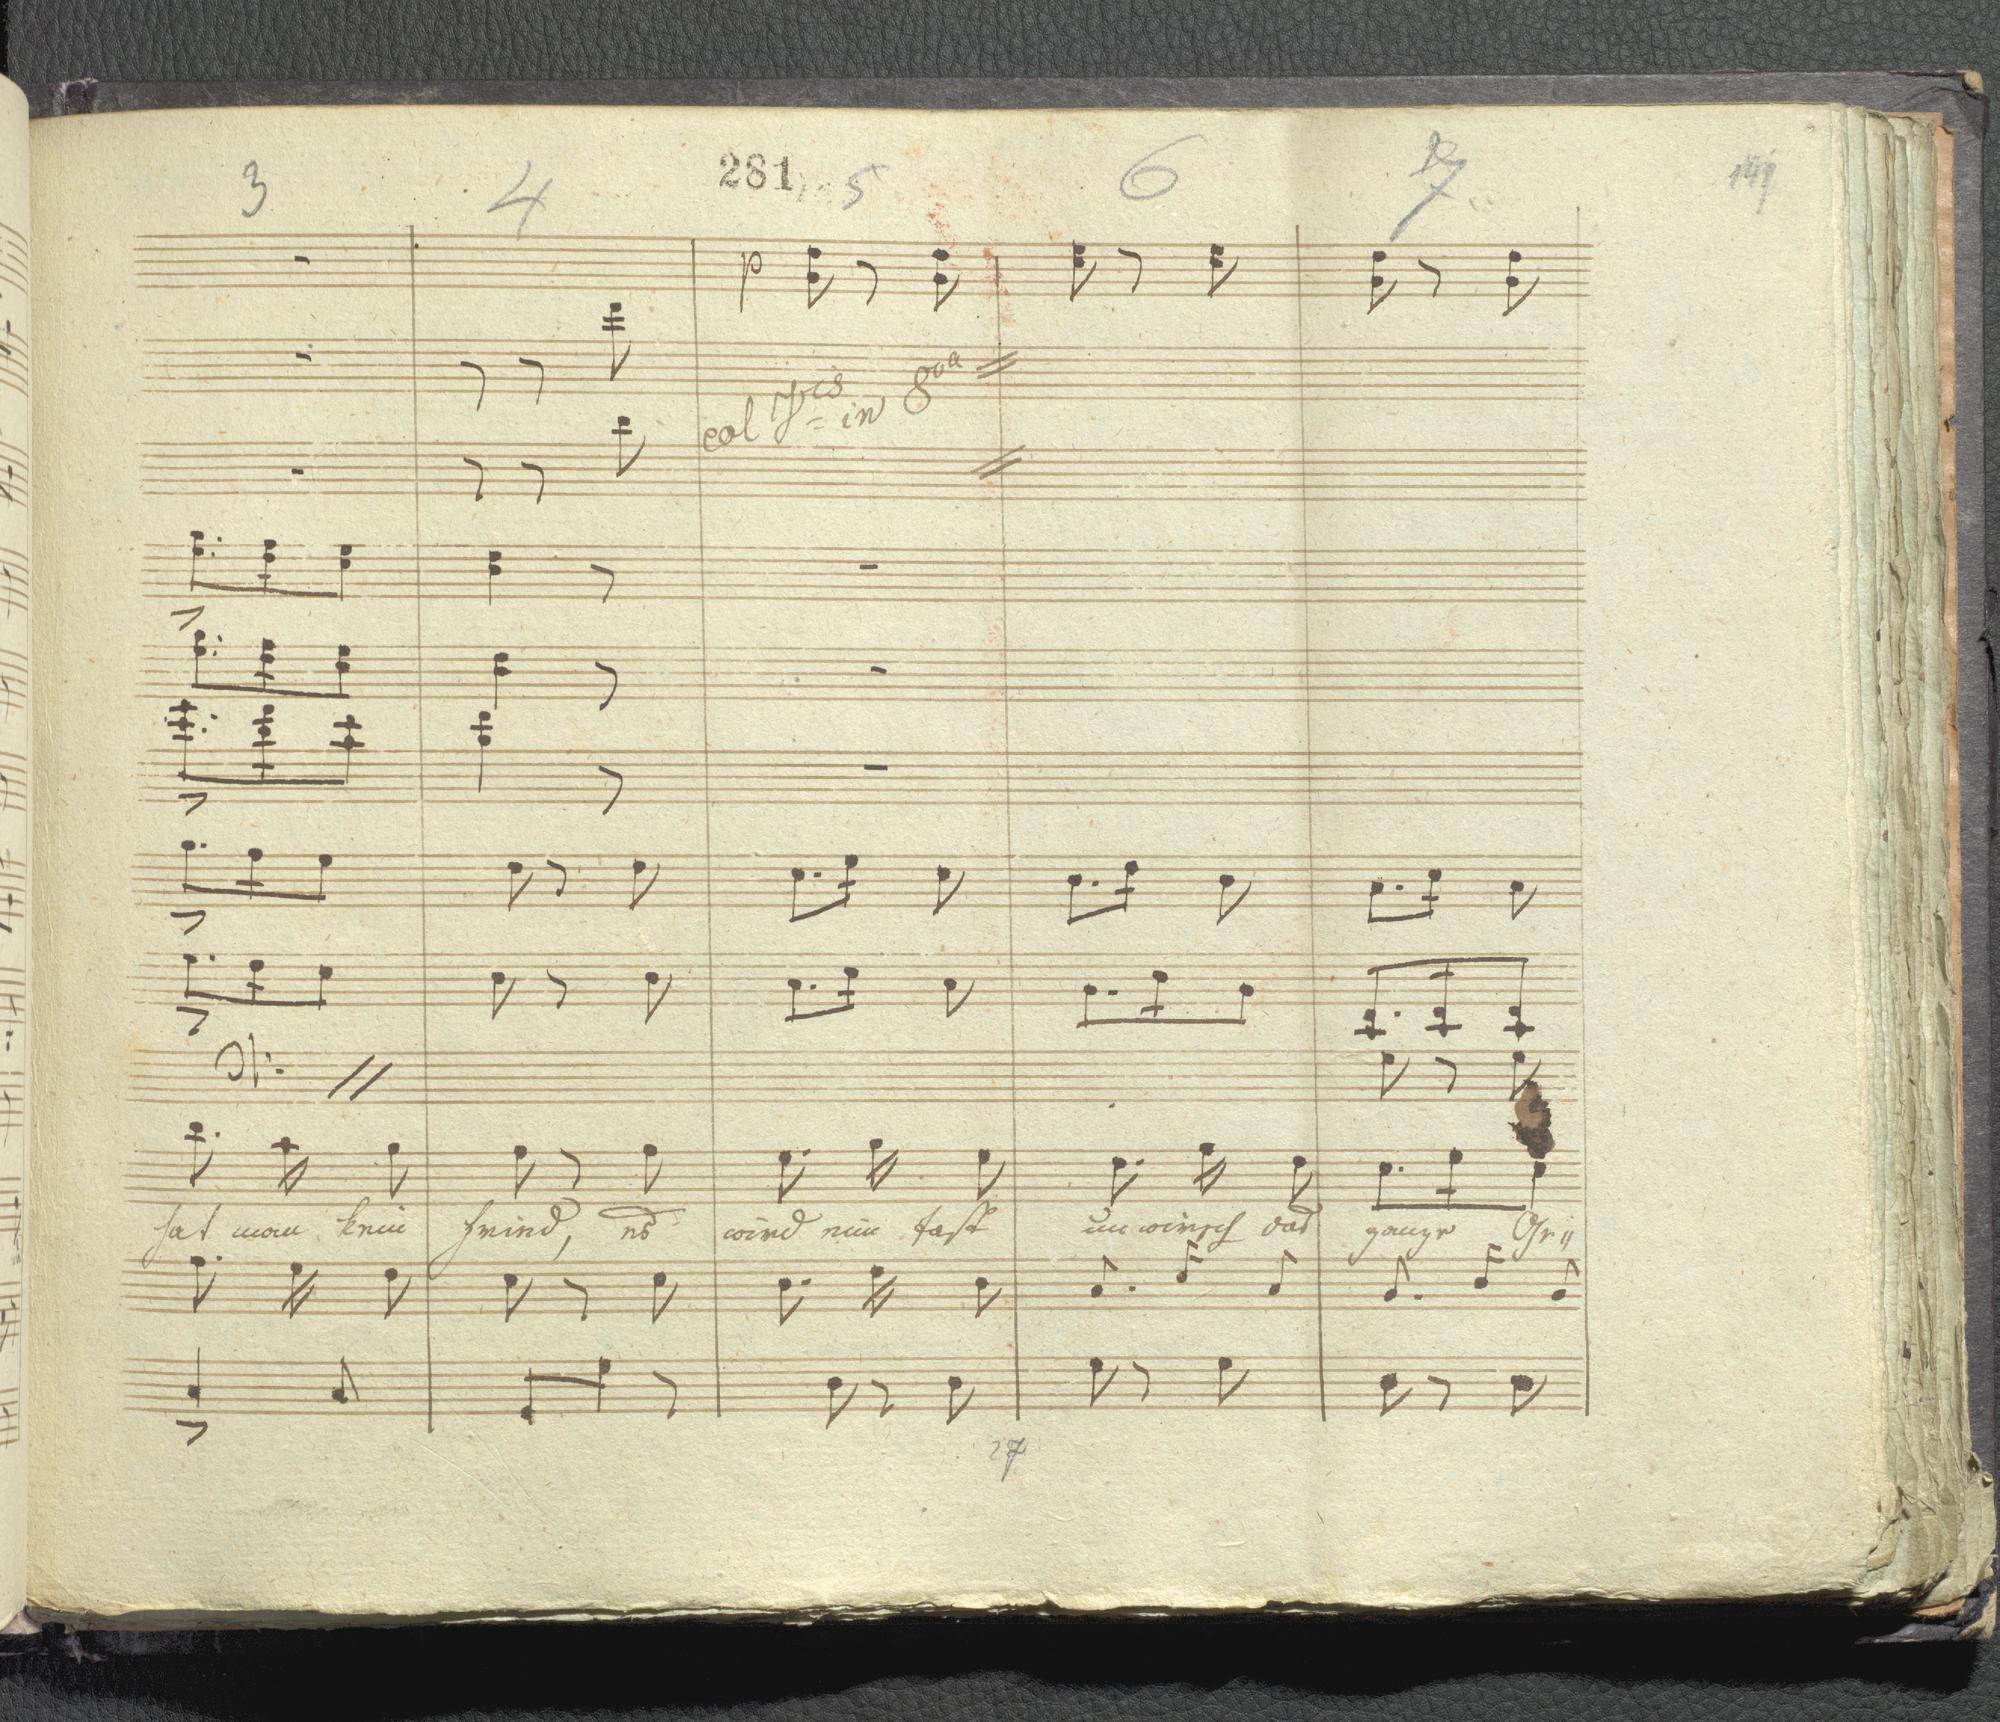 3 4 281 5 6 7 141
p
col in 8va
hat man kein Feind, es wird nun fast unwirsch das ganze
27